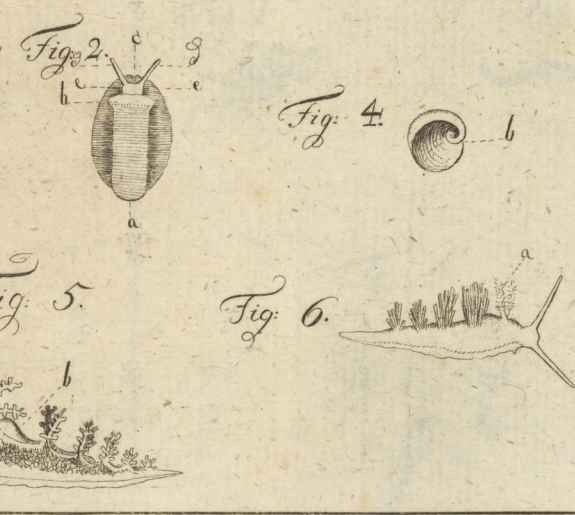 Fig: 2.
c
g
d
e
e
b
a
Fig: 4.
b
ig: 5.
b
Fig: 6.
a